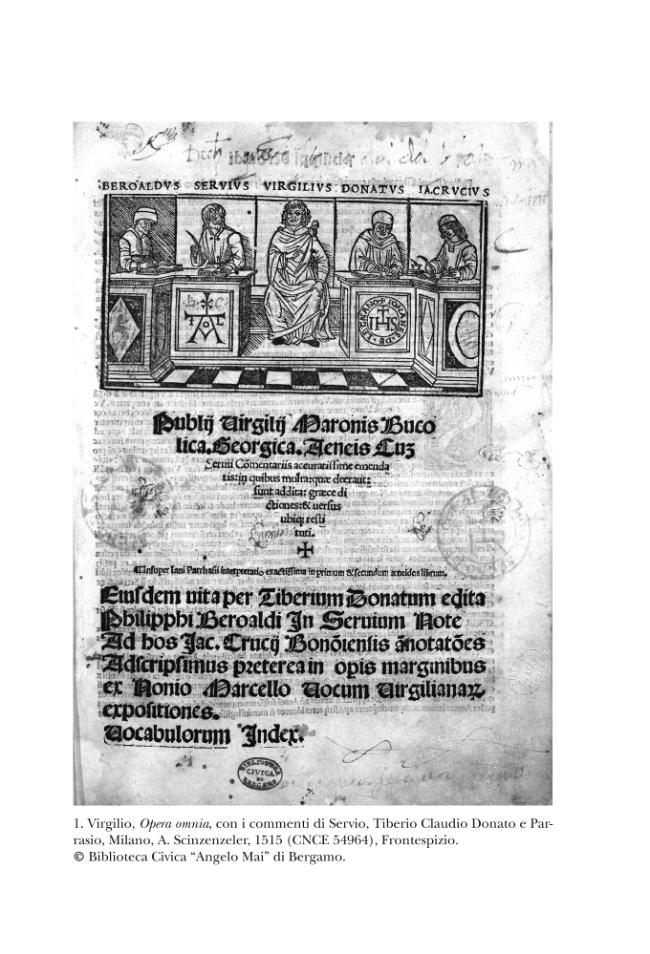 BEROALDVS SERVIVS VIRGILIVS DONATVS IA.CRVCIVS
IHS
Publij Virgilij Maronis Buco
lica. Georgica. Aeneis Cuʒ
Seruii Cōmentariis accuratissime emenda
tis: in quibus multa: quæ deerant:
sunt addita: græce di
ctiones: & uersus
ubiq; resti
tuti.
✠
Insuper Iani Parrhasii interpretatio exactissima in primum & secundum æneidos librum.
Eiusdem uita per Tiberium Donatum edita
Philipphi Beroaldi In Seruium Note
Ad hos Jac. Crucij Bonōiensis ānotatōes
Adscripsimus preterea in opis marginibus
ex Nonio Marcello Uocum Uirgilianaꝝ.
expositiones.
Uocabulorum Index.
BIBLIOTECA
CIVICA
DI
BERGAMO
1. Virgilio, Opera omnia, con i commenti di Servio, Tiberio Claudio Donato e Par-
rasio, Milano, A. Scinzenzeler, 1515 (CNCE 54964), Frontespizio.
© Biblioteca Civica “Angelo Mai” di Bergamo.